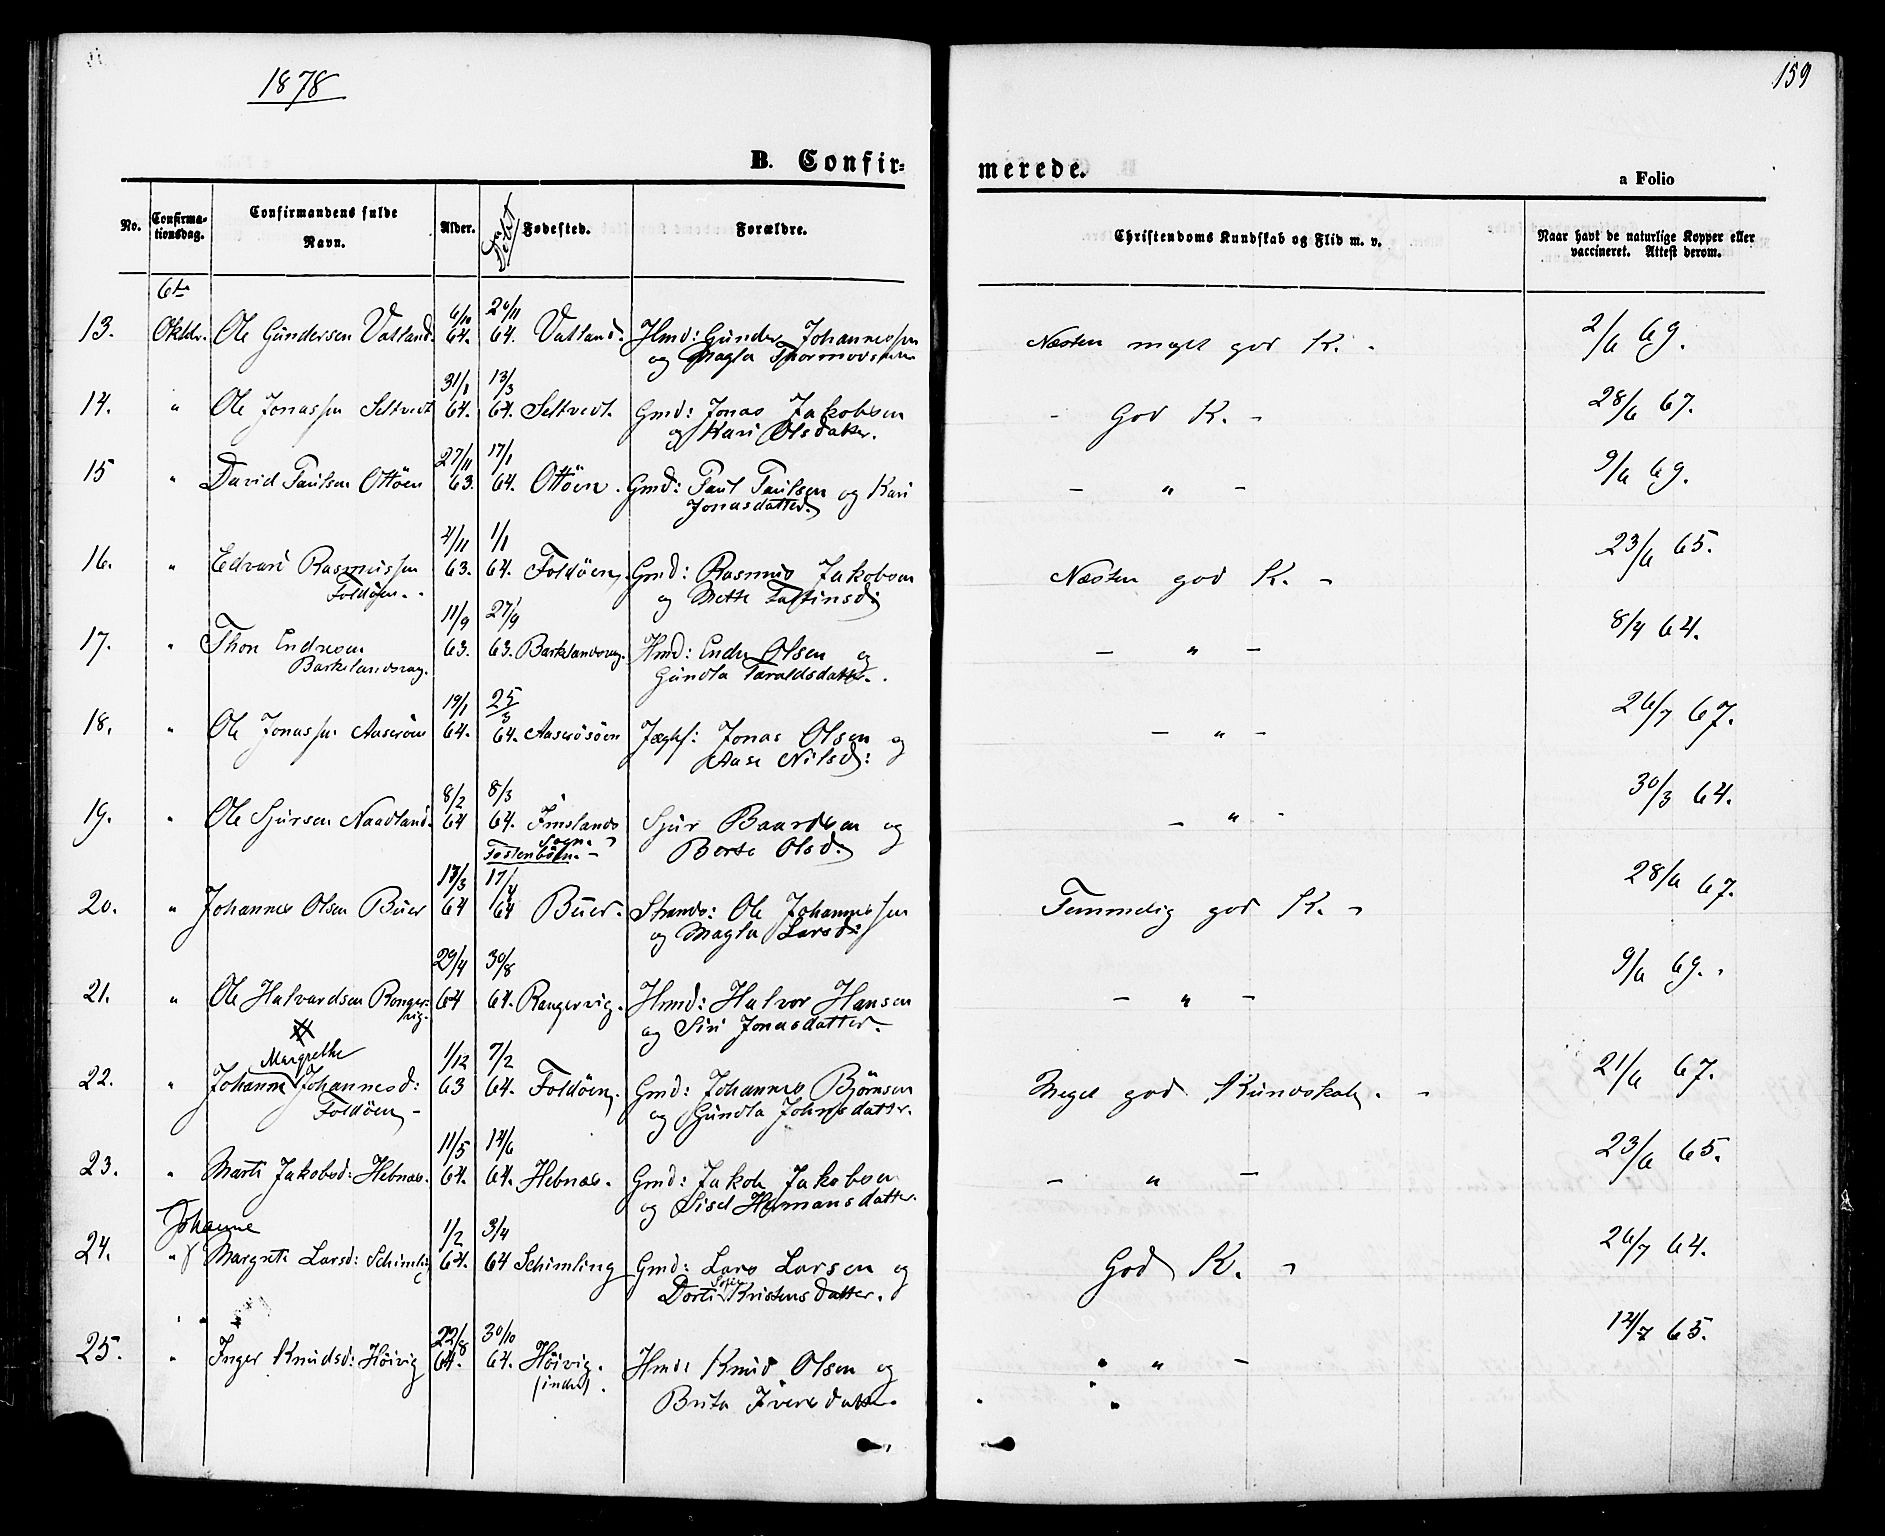 1878
159
B. Confir-
merede.
a Folio
No.
Confirma-
tionsdag.
Confirmandens fulde
Navn.
Alder.
Døbt
Fødested.
Forældre.
Christendoms Kundskab og Flid m. v.
Naar havt de naturlige Kopper eller
vaccineret. Attest derom.
6te 6/10 20/11
13. Oktbr. Ole Gundersen Vatland. 64. 64. Vatland. Hmd: Gunder Johannessen Næsten meget god K. - 2/6 69.
og Magla Thormodsdatter
31/1 13/3
14. " Ole Jonassen Seltvedt 64. 64. Seltvedt. Gmd: Jonas Jakobsen - God K. - 28/6 67.
og Kari Olsdatter.
27/11 17/1
15 " David Paulsen Ottöen 63. 64. Ottöen. Gmd: Paul Paulsen og Kari - " - 9/6 69.
Jonasdatter
4/11 1/1
16. " Edvard Rasmussen 63. 64. Foldöen. Gmd: Rasmus Jakobsen Næsten god K. - 23/6 65.
Foldöen. og Mette
11/9 27/9
17. " Thore Endresen 63. 63. Barklandsvag. Hmd: Endre Olsen og - " - 8/9 64.
Barkelandsvag. Gundla Taraldsdatter.
19/1 25/3
18. " Ole Jonassen 64. 64. Jonas Olsen og - " - 26/7 67.
Aase Nilsd:
8/2 8/3
19. " Ole Sjursen Naadland. 64 64. Imslands Sjur Baardsen og - " - 30/3 64.
Sogn. Berte Olsd.
17/3 17/4
20. " Johannes Olsen Buer 64 64 Buer. Strands: Ole Johannessen Temmelig god K. - 28/6 67.
og Magla Larsd:
29/4 30/8
21. " Ole Halvardsen Ronger- 64 64. Rangervig. Hmd: Halvor Hansen - " - 9/6 69.
vig. og Siri Jonasdatter.
Margrethe 1/12 7/2
22. " Johanne Johannesd: 63 64. Foldöen. Gmd: Johannes Bjørnsen Meget god Kundskab. - 21/6 67.
Foldöen - og Gundla Johnsdatter.
11/5 12/6
23. " Marte Jakobsd: Hebnæs. 64. 64. Hebnæs. Gmd: Jakob Jakobsen - " - 23/6 65.
og Sisel Hermansdatter.
Johanne 1/2 3/4
24. " Margrete Larsd: Schimling 64. 64 Schimling Gmd: Lars Larsen og God K. - 26/7 64.
Dorte Sofie Kristensdatter.
22/8 30/10
25. " Inger Knudsd: Höivig 64. 64. Höivig. Hmd: Knud Olsen og " - 12/7 65.
(indre). Brita Iversdatter.